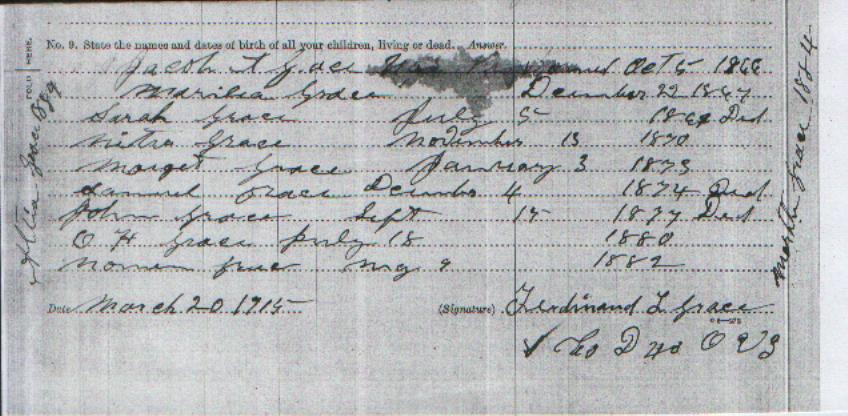 FOLD HERE.
No. 9. State the names and dates of birth of all your children, living or dead. Answer.
Jacob A Grace Oct 5 1866
Marilia Grace December 22 1867
Sarah Grace July 5 Died
Grace November 13 1870
Marget Grace January 3 1873
Samuel Grace Decmber 4 1874 Died
John Grace Sept 15 1877 Died
O H Grace July 18 1880
Grace 9 1882
Date March 20 1915
(Signature) Ferdinand L Grace
Co D 40 O V I
Grace 1884
Grace 1889